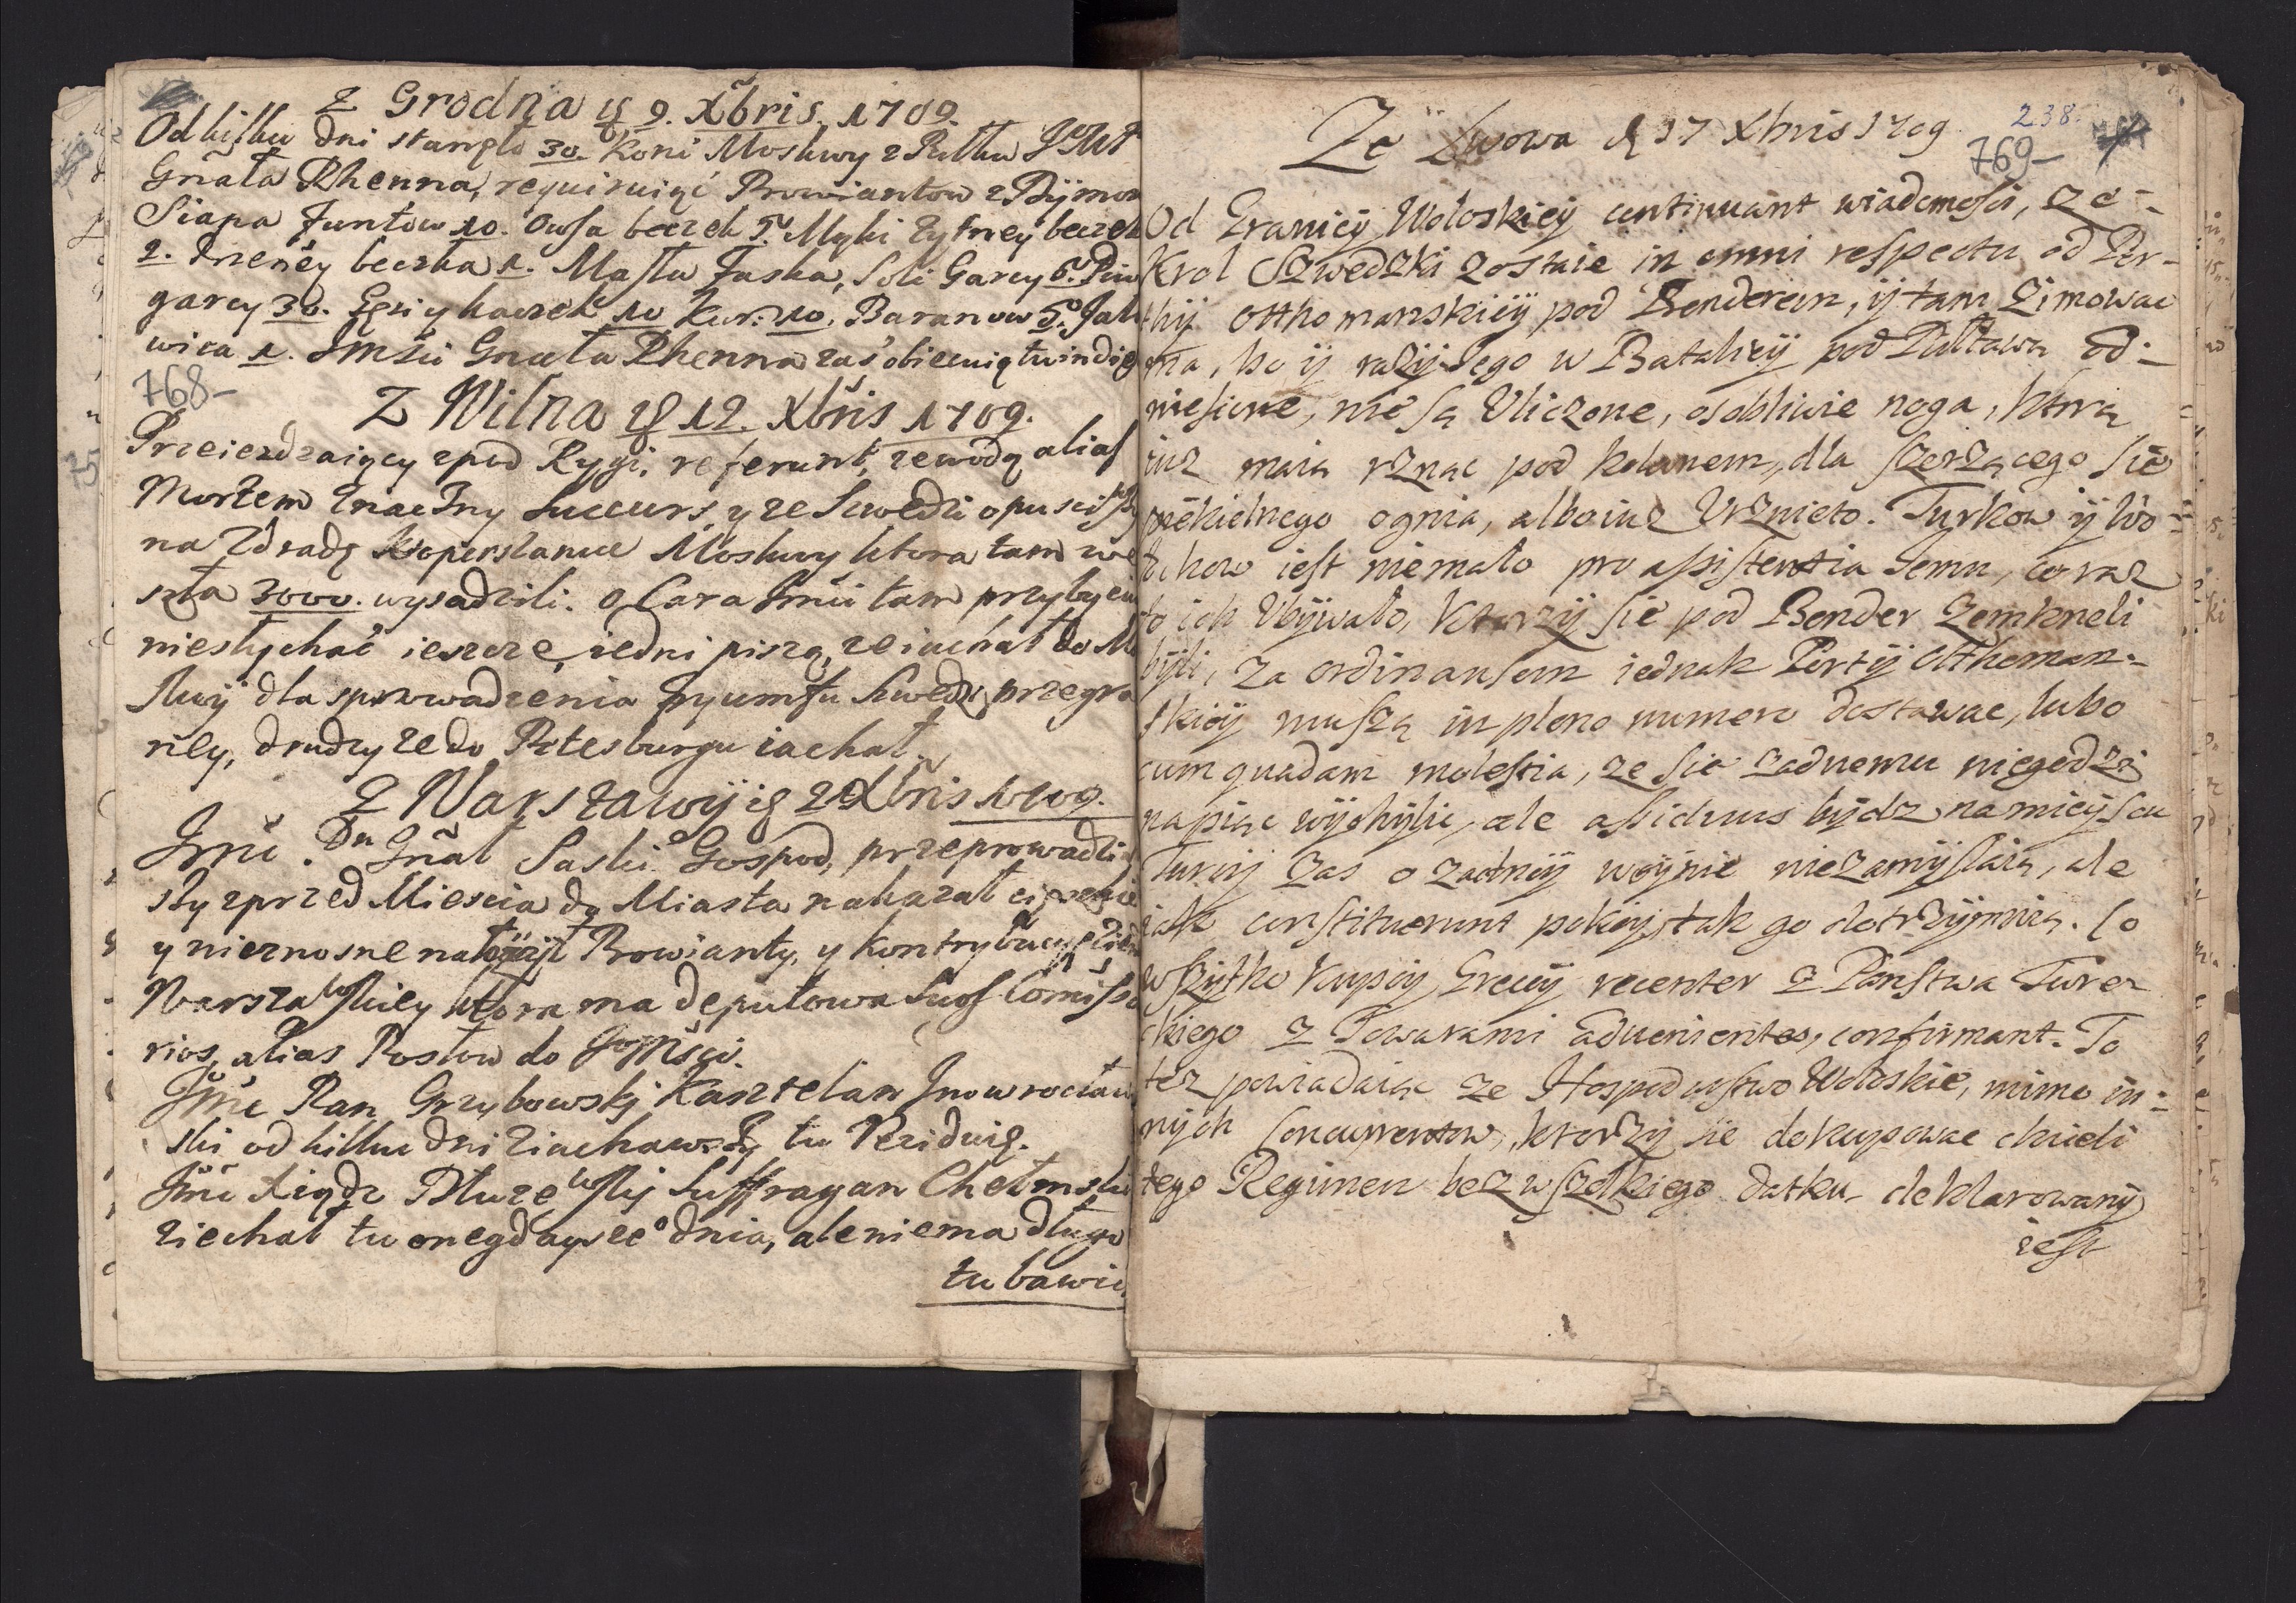 Z Grodna 9. Xbris. 1709.
Od kilku dni stanęło 30. Koni Moskwy z Pułku
Gnała Rhenna, requiruiąć Prowiantow z Dÿmow
Siana Funtow 10. Owsa beczek 5. Mąki Zytney beczek
2. beczka 1. Masła Faska, Soli Garcy 6. Piw
garcy 30. Gęsi y kaczek 10 Kur. 10. Baranow 5. Jało
wica 1. Gnała Rhenna zas obiecuią tu
768-
Z Wilna 12. Xbris 1709.
Przeiezdzaiący zpod Rygi, referunt, ze wodą alias
Morzem Znaczny Succurs, y ze Szwedzi
na Zdradę Moskwy ktora tam we
szła 3000. wysadzili. O Cara Jmći tam przybyciu
niesłychać ieszcze, iedni piszą, ze iachał do Mo
skwÿ dla sprowadzenia tryumfu przegra
ney, drudzy ze do Petesburgu iachał.
Z Warszawÿ Xbris 1709.
Jmć. Dn Gnał Saski przeprowadzi
sży zprzed Miescia do Miasta nakazał
y nieznosne Prowianty, y kontrybucye
Warszawskiey ktora ma deputowa Suos Comissa
rios, alias Posłow do
Jmć Pan Grzybowskj Kasztelan Jnowrocław
ski od kilku dni ziachawszy tu Reziduię.
Jmć Xiądz Suffragan Chełmski
ziechał tu dnia, ale niema długo
tu bawić
Ze Lwowa 17 Xbris 1709
238.
769-
Od Granicÿ Wołoskieÿ continuant wiadomosci, ze
Krol Szwedzki zostaie in omni respectu od Por-
thÿ Otthomanskieÿ pod Benderem, ÿ tam Zimowac
ma, bo ÿ razÿ Jego w Bataliеÿ pod Pułtawą od-
niesione, nie są Uliczone, osobliwie noga, ktorą
iuz maią rznąc pod kolanem, dla szerzącego się
piekielnego ognia, albo iuz Urznieto. Turkow ÿ Wo-
łochow iest niemało pro assistentia Jemu, co raz
to ich Ubÿwało, Ktorzÿ sie pod Bender zemkneli
bÿli, za ordinansem iednak Portÿ Otthoman-
skieÿ muszą in pleno numero dostawac, lubo
cum quadam molestia, ze sie zadnemu niegodzi
napiąc wÿchÿlic, ale assiduus bÿdz na mieÿscu
Turcÿ zas o zadneÿ woÿnie niezamÿslaią, ale
iak constituerunt pokoÿ, tak go dotrzÿmuią. Co
wszÿtko Kupcÿ Grecÿ recenter z Panstwa Ture-
ckiego z Towarami aduenientes, confirmant. To
tez powiadaiąc ze Hospodarstwo Wołoskie, mimo in-
nÿch Concurrentow, ktorzÿ sie dokupowac chcieli
tego Regimen bez wszelkiego datku deklarowanÿ
iest